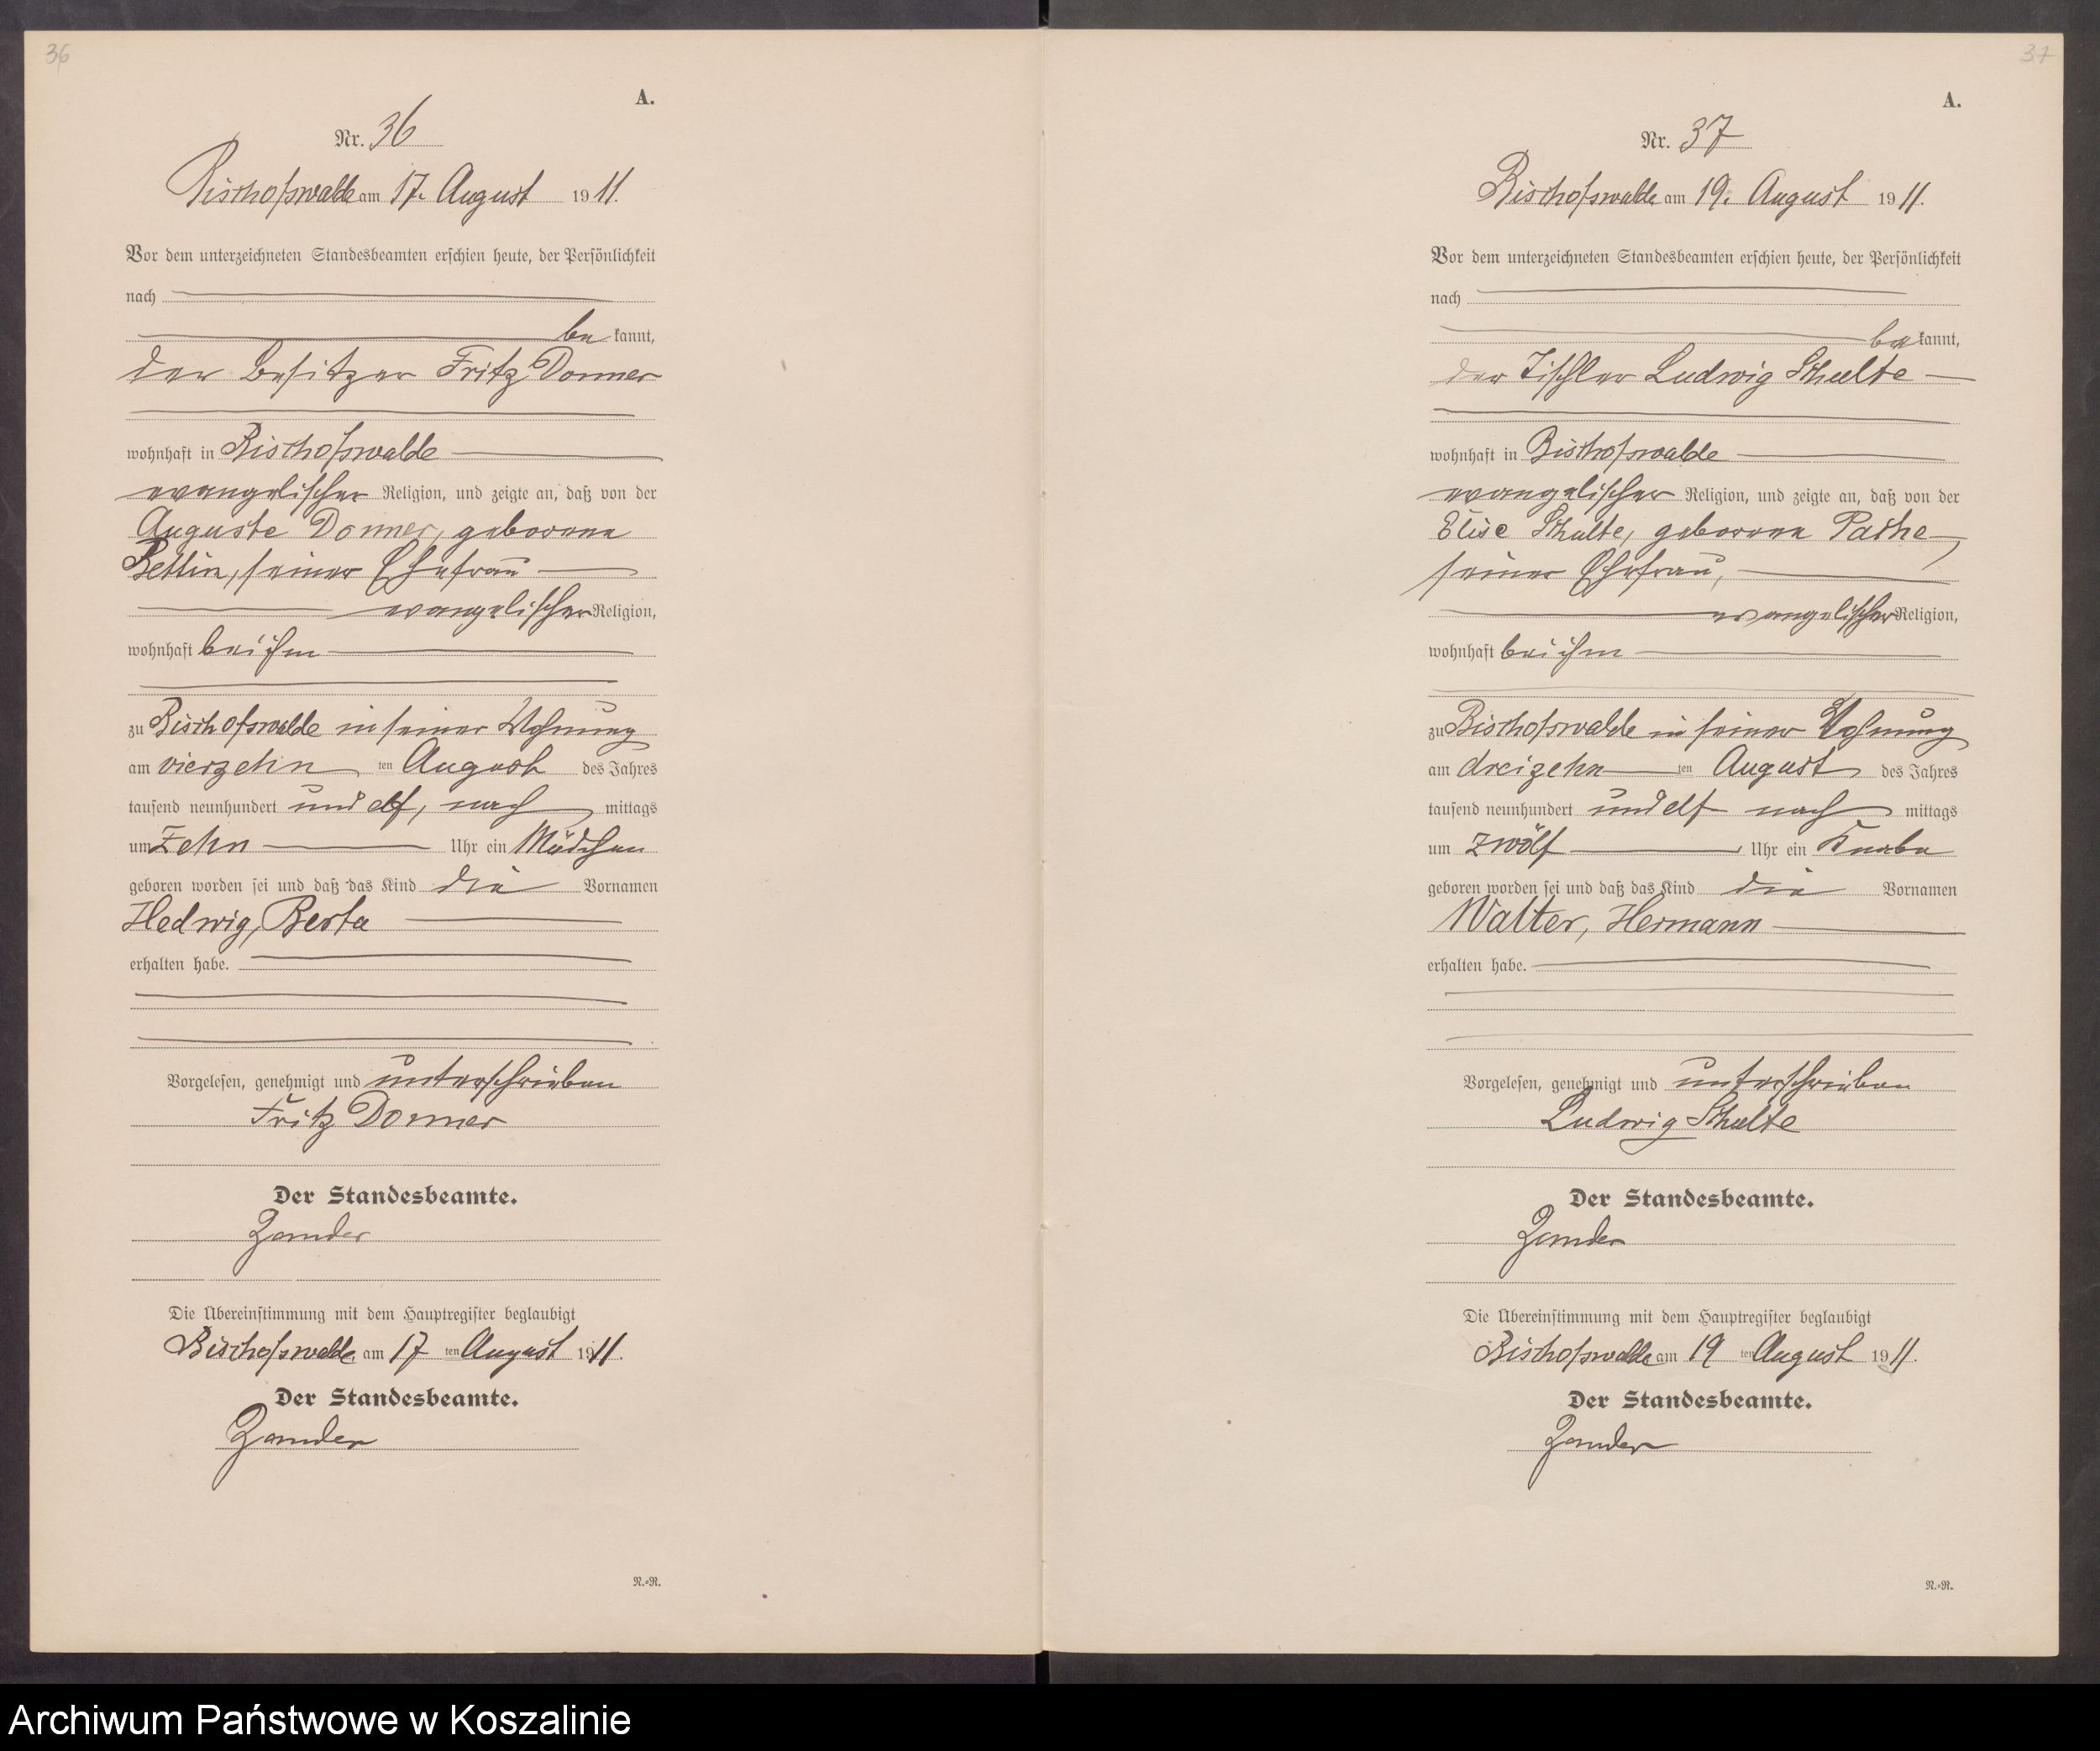 36
A.
Nr. 36
Bischofswalde am 17. August 1911.
Vor dem unterzeichneten Standesbeamten erschien heute, der Persönlichkeit
nach
be kannt,
der Besitzer Fritz Donner
wohnhaft in Bischofswalde
evangelischer Religion, und zeigte an, daß von der
Auguste Donner, geborene
Bettin, seiner Ehefrau
evangelischer Religion,
wohnhaft bei ihm
zu Bischofswalde in seiner Wohnung
am vierzehn ten August des Jahres
tausend neunhundert und elf, nach mittags
um Zehn Uhr ein Mädchen
geboren worden sei und daß das Kind die Vornamen
Hedwig, Berta
erhalten habe.
Vorgelesen, genehmigt und unterschrieben
Fritz Donner
Der Standesbeamte.
Zander
Die Übereinstimmung mit dem Hauptregister beglaubigt
Bischofswalde am 17 ten August 1911.
Der Standesbeamte.
Zander
N.=R.
37
A.
Nr. 37
Bischofswalde am 19. August 1911.
Vor dem unterzeichneten Standesbeamten erschien heute, der Persönlichkeit
nach
be kannt,
der Tischler Ludwig Schulte
wohnhaft in Bischofswalde
evangelischer Religion, und zeigte an, daß von der
Elise Schulte, geborene Pasche,
seiner Ehefrau,
evangelischer Religion,
wohnhaft bei ihm
zu Bischofswalde in seiner Wohnung
am dreizehn ten August des Jahres
tausend neunhundert und elf nach mittags
um zwölf Uhr ein Knabe
geboren worden sei und daß das Kind die Vornamen
Walter, Hermann
erhalten habe.
Vorgelesen, genehmigt und unterschrieben
Ludwig Schulte
Der Standesbeamte.
Zander
Die Übereinstimmung mit dem Hauptregister beglaubigt
Bischofswalde am 19 ten August 1911.
Der Standesbeamte.
Zander
N.=R.
Archiwum Państwowe w Koszalinie